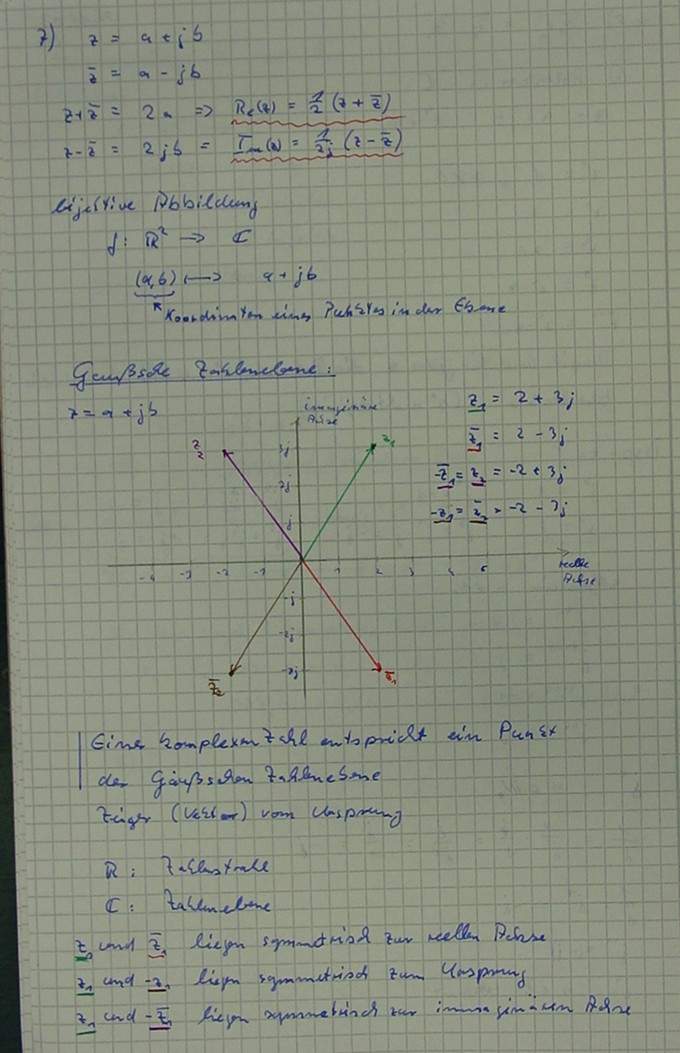 7) z = a + jb
z̄ = a - jb
z+z̄ = 2a => Re(z) = 1/2 (z + z̄)
z-z̄ = 2jb = Im(z) = 1/2j (z - z̄)
bijektive Abbildung
f: ℝ² → ℂ
(a,b) ⟼ a + jb
Koordinaten eines Punktes in der Ebene
Gaußsche Zahlenebene:
z = a + jb
imaginäre
Achse
z₁ = 2 + 3j
z̄₁ = 2 - 3j
-z̄₁ = z₂ = -2 + 3j
-z₁ = z̄₂ = -2 - 3j
z₂
z₁
3j
2j
j
-4 -3 -2 -1 1 2 3 4 5
reelle
Achse
-j
-2j
-3j
z̄₂
z̄₁
Einer komplexen Zahl entspricht ein Punkt
der Gaußschen Zahlenebene
Zeiger (Vektor) vom Ursprung
ℝ: Zahlenstrahl
ℂ: Zahlenebene
z₁ und z̄₁ liegen symmetrisch zur reellen Achse
z₁ und -z₁ liegen symmetrisch zum Ursprung
z₁ und -z̄₁ liegen symmetrisch zur imaginären Achse